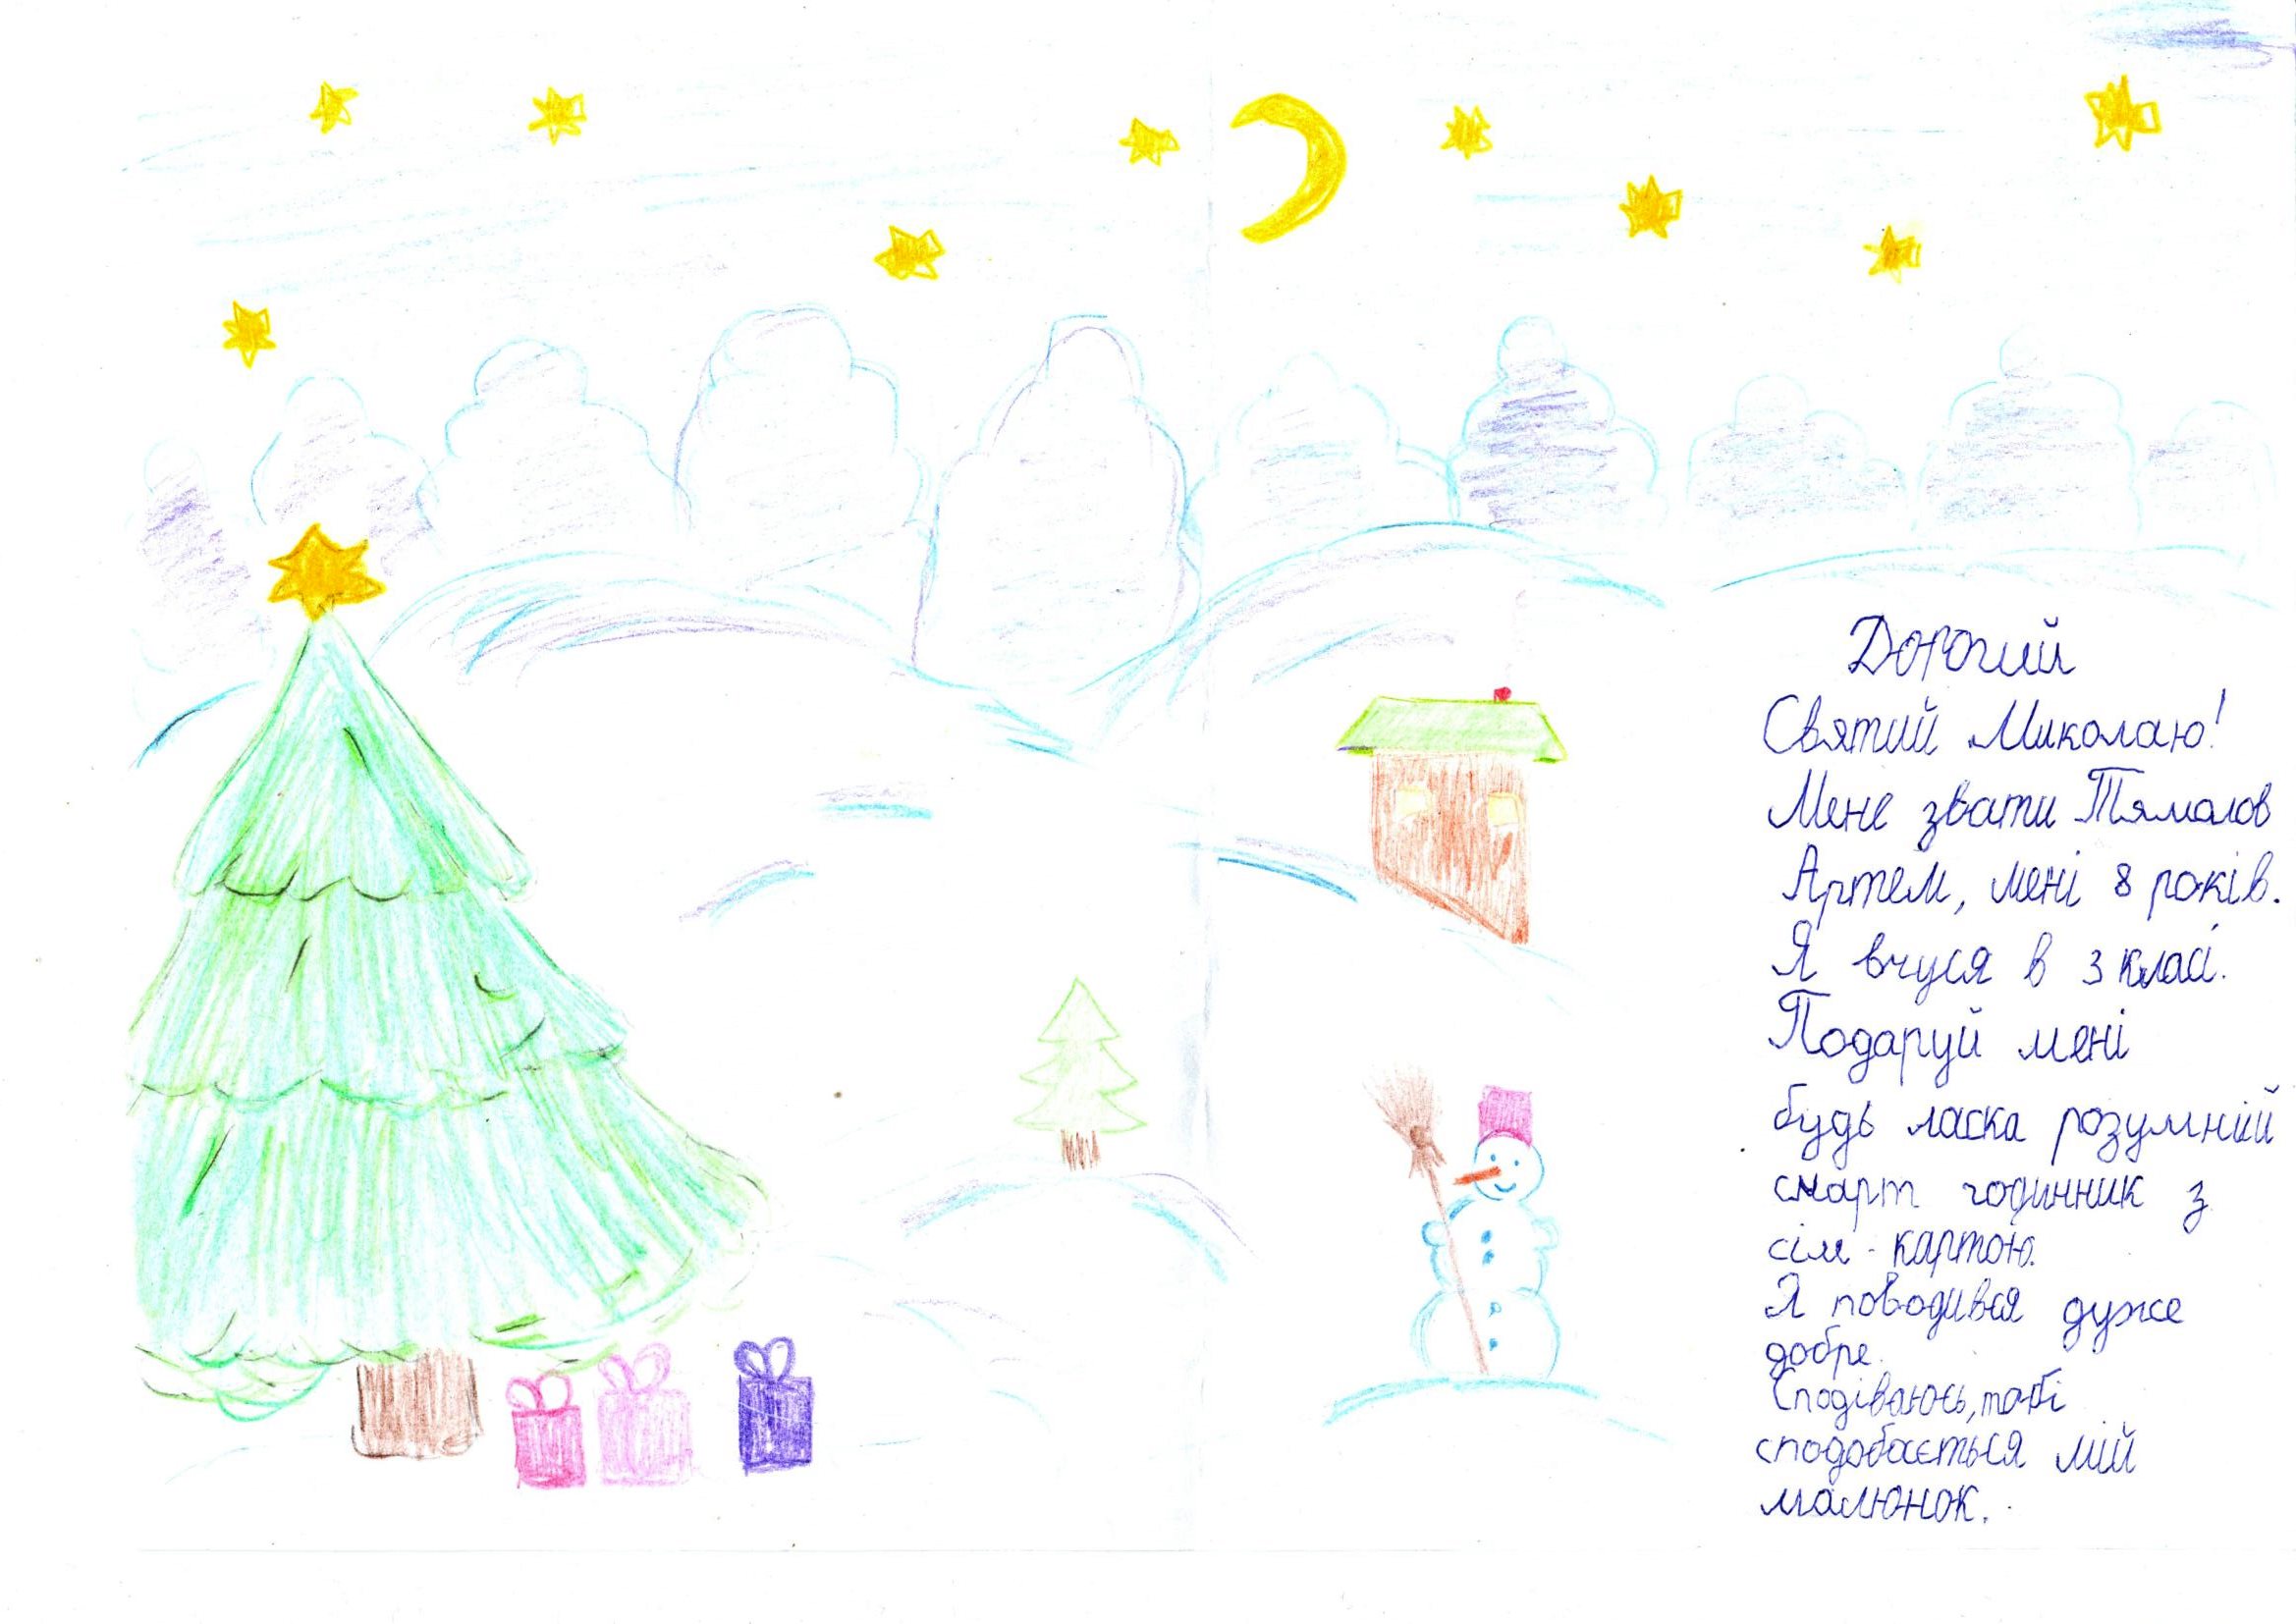 Дорогий
Святий Миколаю!
Мене звати Тямалов
Артем, мені 8 років.
Я вчуся в 3 класі.
Подаруй мені
будь ласка розумний
смарт годинник з
сім-картою.
Я поводився дуже
добре.
Сподіваюсь, тобі
сподобається мій
малюнок.